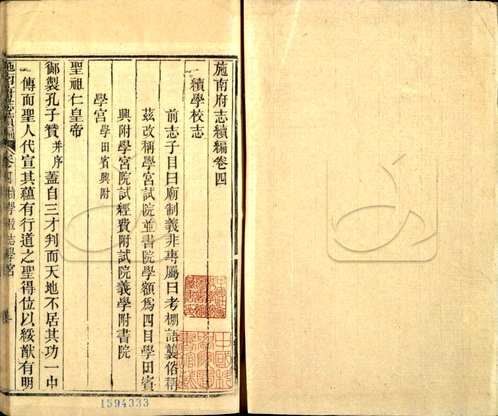 施南府志續編卷四
續學校志
前志子目曰廟制義非專屬曰考棚語襲俗稱
茲改稱學宮試院並書院學額爲四目學田賓
興附學宮院試經費附試院義學附書院
學宮 學田賓興附
聖祖仁皇帝
御製孔子贊 并序 蓋自三才判而天地不居其功一中
傳而聖人代宣其蘊有行道之聖得位以綏猷有明
1594333